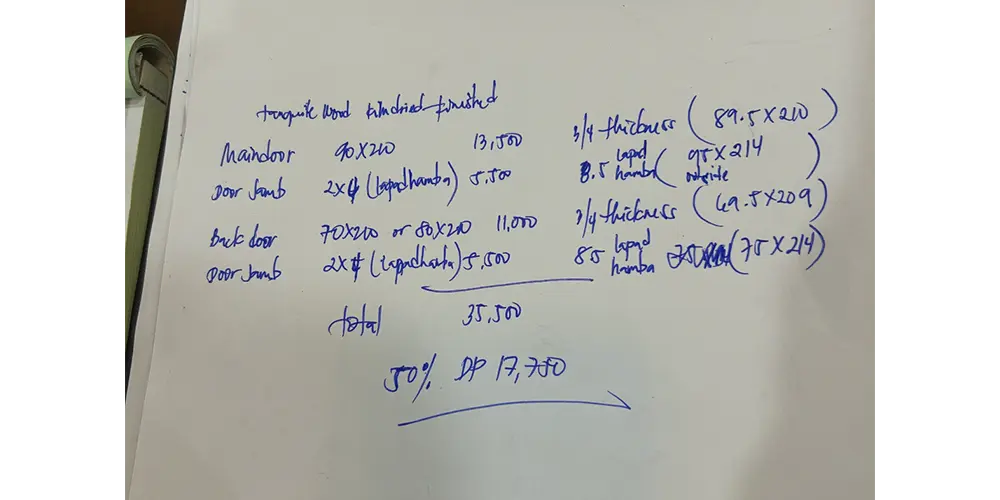 tanguile wood kilndried finished
Maindoor 90x210 13,500 3/4 thickness (89.5X210)
Door Jamb 2x4 (lapad hamba) 5,500 8.5 lapad hamba (95X214 outside)
Back door 70x210 or 80x210 11,000 3/4 thickness (69.5X209)
Door Jamb 2x4 (lapad hamba) 5,500 85 lapad hamba (75X214)
total 35,500
50% DP 17,750